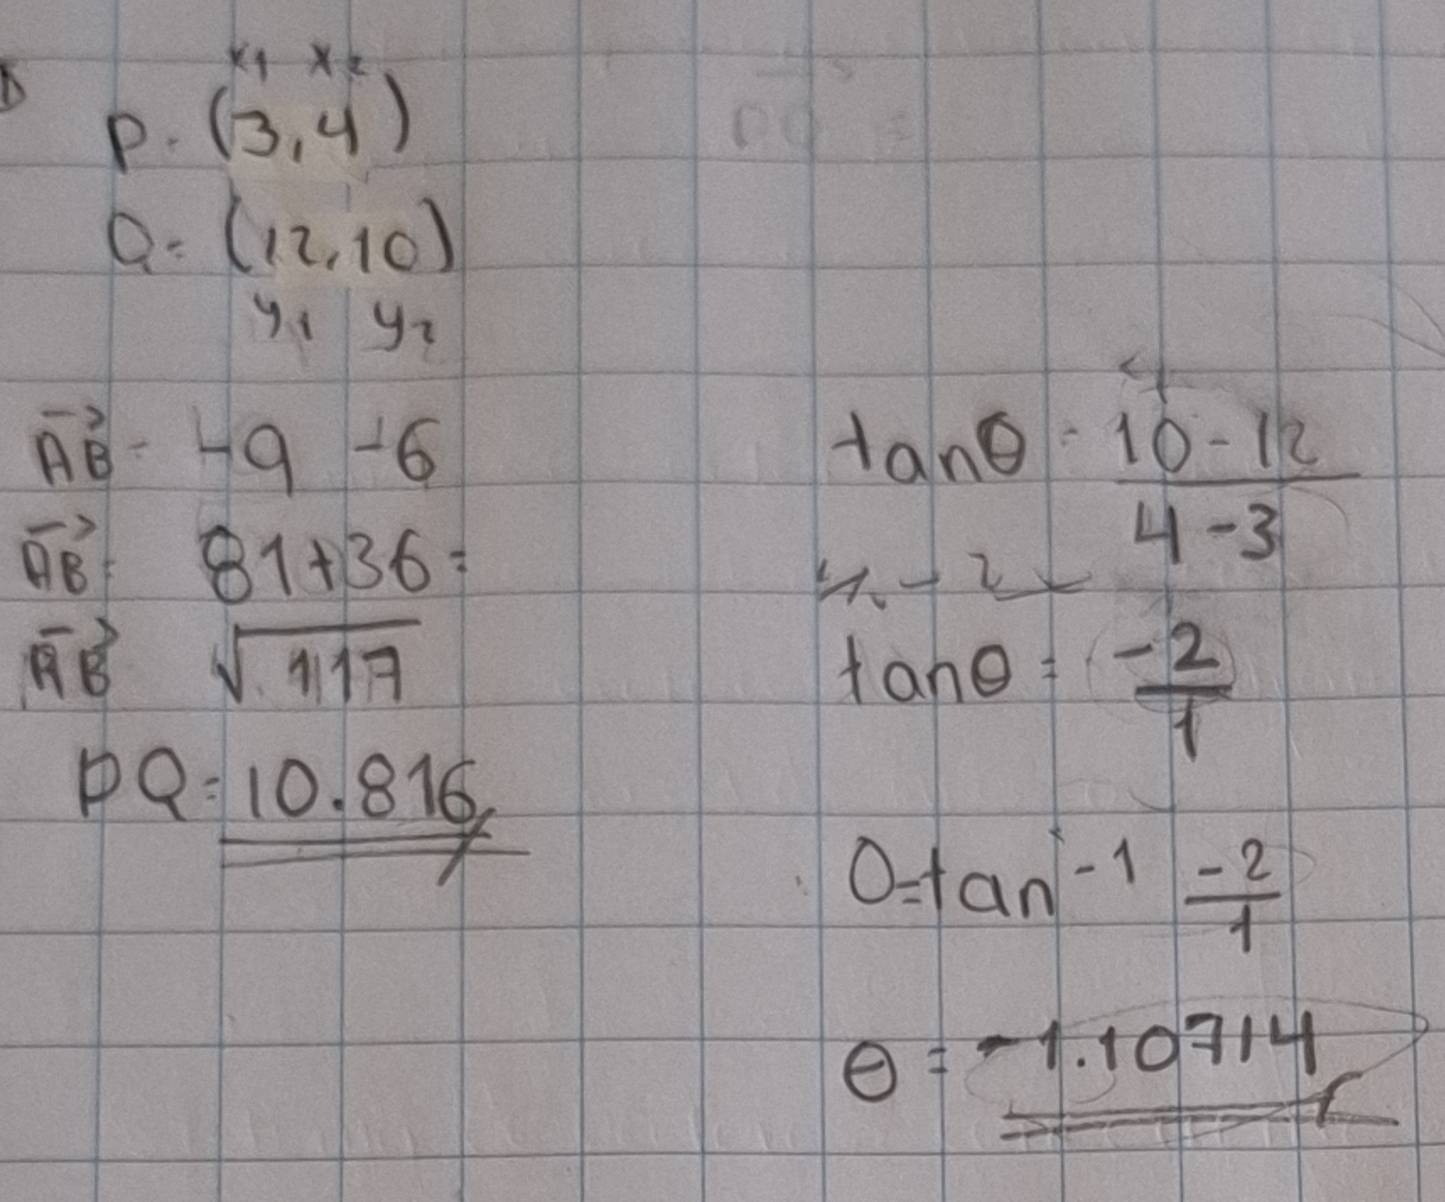 x1 x2
P. (3,4)
Q = (12,10)
y1 y2
AB - +9 +6
AB = 81+36 =
AB √117
PQ = 10.816
tanθ = 10-12 / 4-3
tanθ = -2/1
θ = tan-1 -2/1
θ = -1.10714